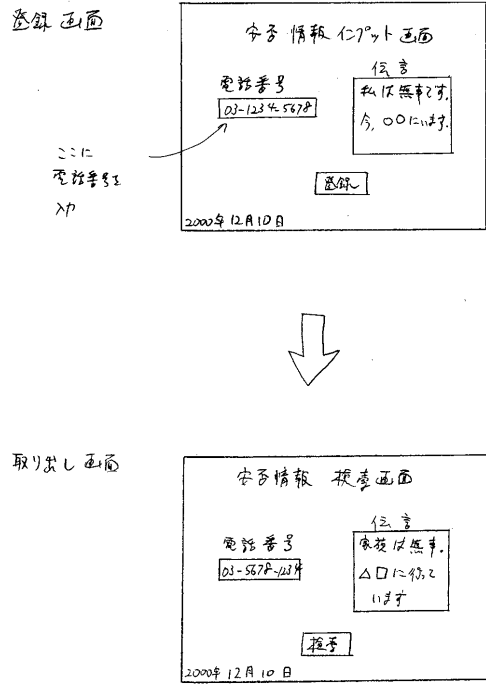 登録画面
安否情報インプット画面
電話番号
03-1234-5678
伝言
私は無事です。
今、〇〇にいます。
ここに
電話番号を
入力
登録
2000年12月10日
取り出し画面
安否情報 検索画面
電話番号
03-5678-1234
伝言
家族は無事。
△□に行って
います
検索
2000年12月10日